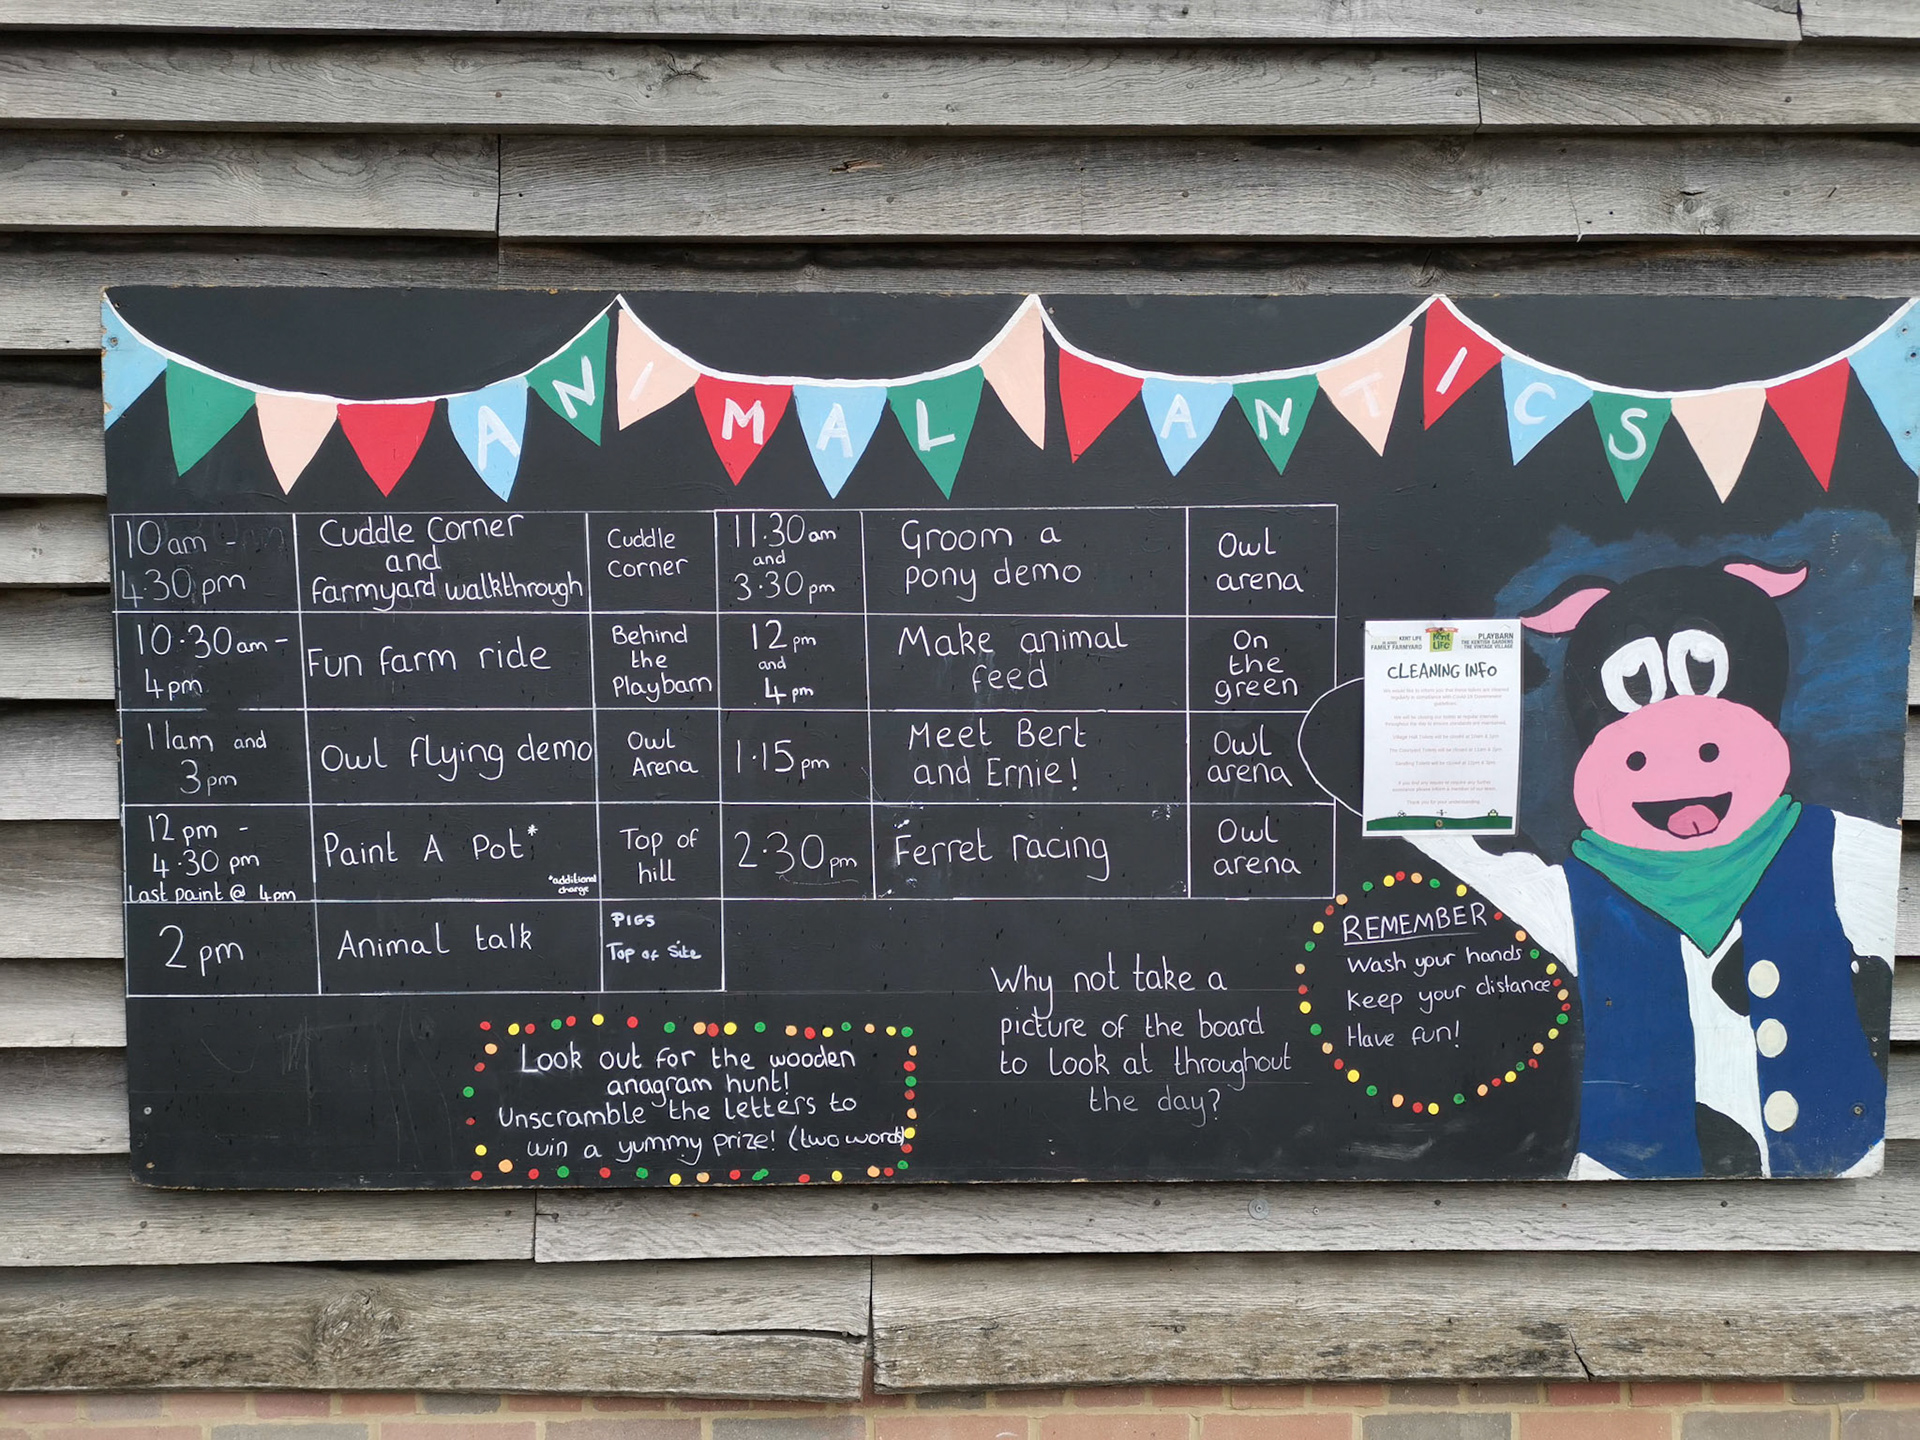 ANIMAL ANTICS
10am -
4.30pm
Cuddle Corner
and
Farmyard walkthrough
Cuddle
Corner
10.30am -
4pm
Fun farm ride
Behind
the
Playbarn
11am and
3pm
Owl flying demo
Owl
Arena
12pm -
4.30pm
Last paint @ 4pm
Paint A Pot*
*additional
charge
Top of
hill
2pm
Animal talk
PIGS
Top of Site
11.30am
and
3.30pm
Groom a
pony demo
Owl
arena
12pm
and
4pm
Make animal
feed
On
the
green
1.15pm
Meet Bert
and Ernie!
Owl
arena
2.30pm
Ferret racing
Owl
arena
Look out for the wooden
anagram hunt!
Unscramble the letters to
win a yummy prize! (two words)
Why not take a
picture of the board
to look at throughout
the day?
KENT LIFE
FAMILY FARMYARD
Kent
Life
PLAYBARN
THE KENTISH GARDENS
THE VINTAGE VILLAGE
CLEANING INFO
Thank you for your understanding
REMEMBER
Wash your hands
Keep your distance
Have fun!